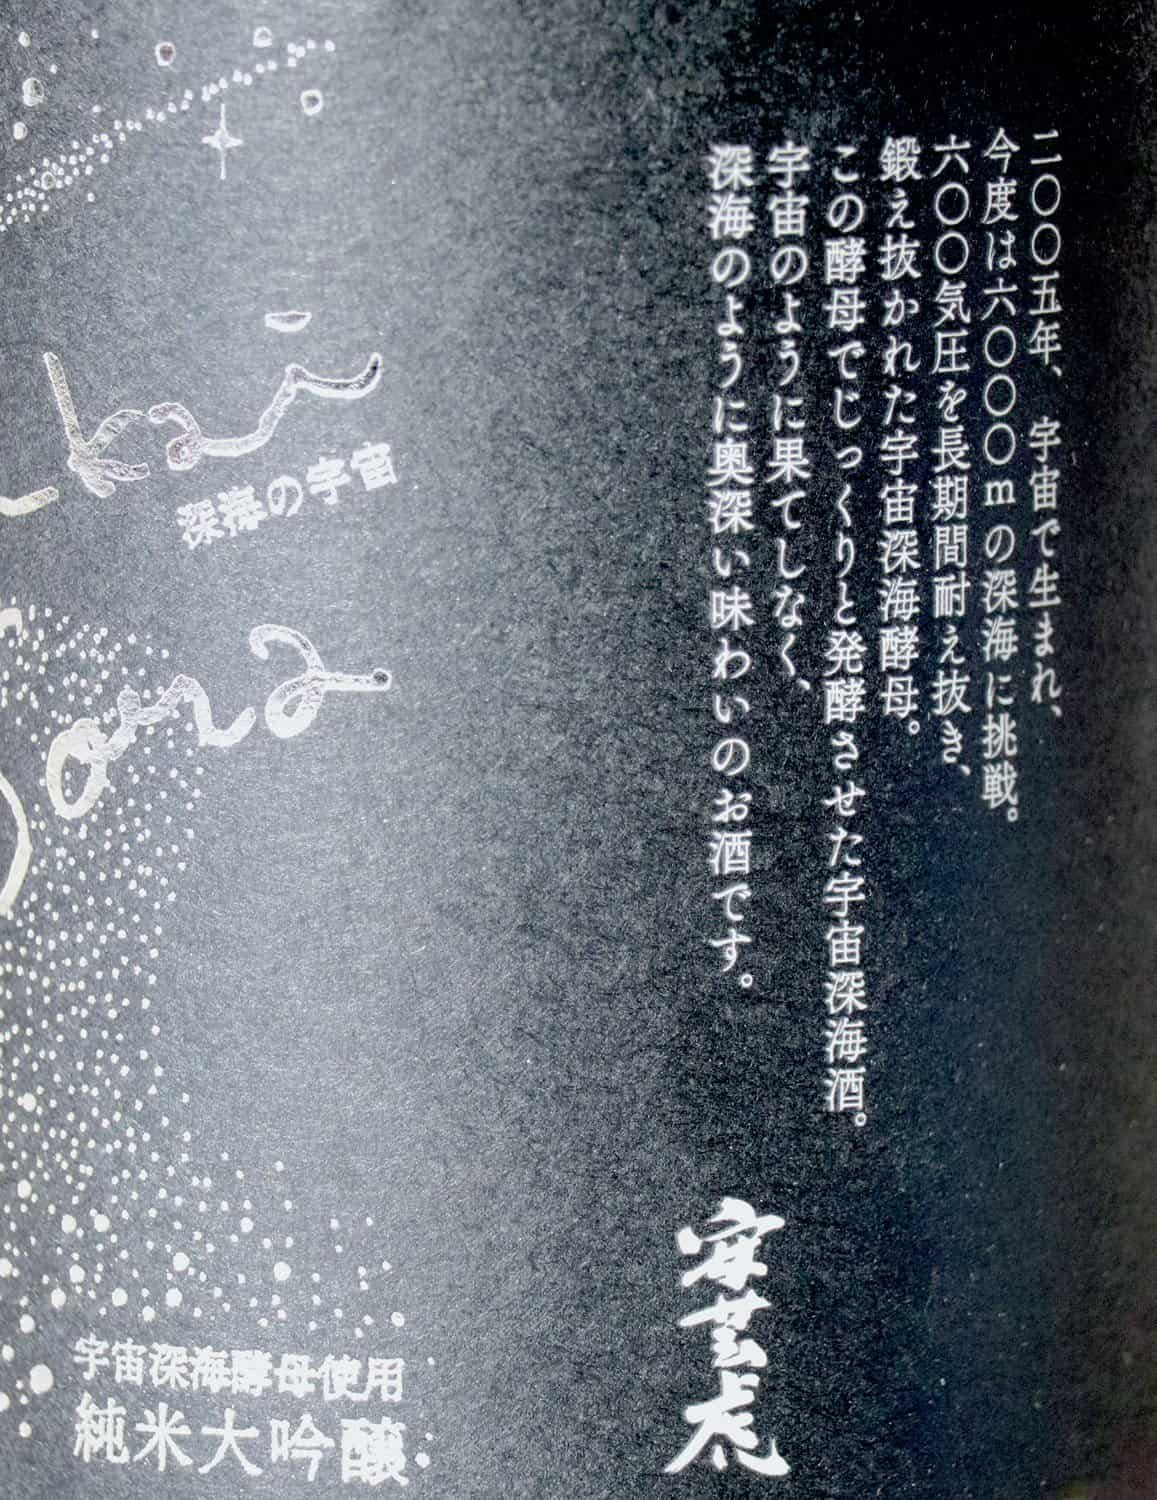 二〇〇五年、宇宙で生まれ、
今度は六〇〇〇mの深海に挑戦。
六〇〇気圧を長期間耐え抜き、
鍛え抜かれた宇宙深海酵母。
この酵母でじっくりと発酵させた宇宙深海酒。
宇宙のように果てしなく、
深海のように奥深い味わいのお酒です。
安芸虎
深海の宇宙
Sora
宇宙深海酵母使用
純米大吟醸